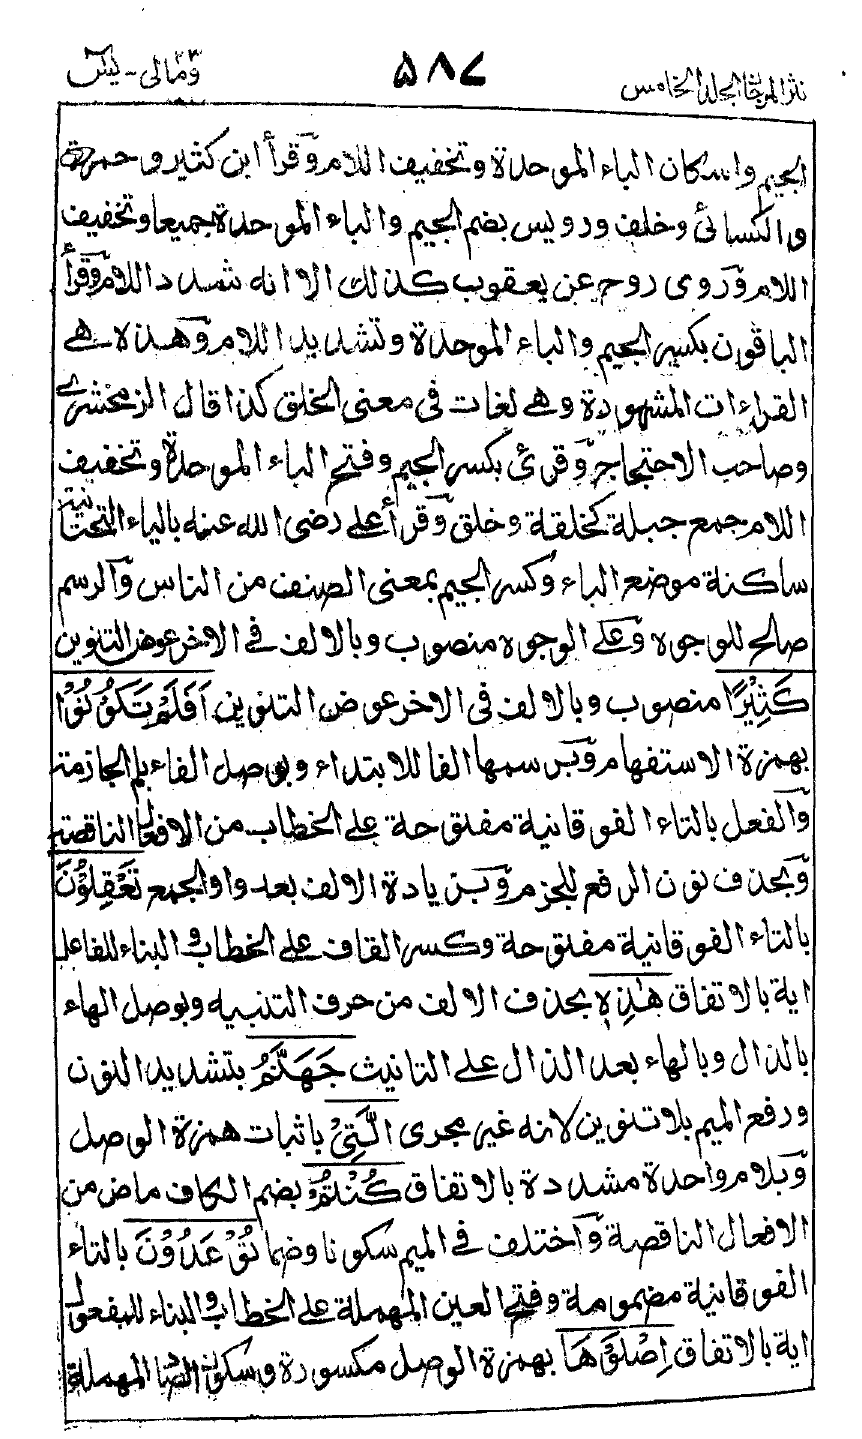 نثر المرجان المجلد الخامس ۵۸۷ ومالى - يٰس
الجيم واسكان الباء الموحدة وتخفيف اللام وقرأ ابن كثير وحمزة
والكسائى وخلف ورويس بضم الجيم والباء الموحدة جميعا وتخفيف
اللام وروى روح عن يعقوب كذلك الا انه شدد اللام وقرأ
الباقون بكسر الجيم والباء الموحدة وتشديد اللام وهذه هے
القراءات المشهودة وهے لغات فى معنى الخلق كذا قال الزمخشرے
وصاحب الاحتجاج وقرئ بكسر الجيم وفتح الباء الموحدة وتخفيف
اللام جمع جبلة كخلقة وخلق وقرأ علے رضى الله عنه بالياء التحتانية
ساكنة موضع الباء وكسر الجيم بمعنى الصنف من الناس والرسم
صالح للوجوه وعلے الوجوه منصوب وبالالف فے الاخر عوض التنوين
كَثِيْرًا منصوب وبالالف فى الاخر عوض التنوين اَفَلَمْ تَكُوْنُوْا
بهمزة الاستفهام وبرسمها الفا للابتداء وبوصل الفاء بلم الجازمة
والفعل بالتاء الفوقانية مفتوحة علے الخطاب من الافعال الناقصة
وبحذف نون الرفع للجزم وبزيادة الالف بعد واو الجمع تَعْقِلُوْنَ
بالتاء الفوقانية مفتوحة وكسر القاف علے الخطاب والبناء للفاعل
اية بالاتفاق هٰذِهٖ بحذف الالف من حرف التنبيه وبوصل الهاء
بالذال وبالهاء بعد الذال علے التانيث جَهَنَّمُ بتشديد النون
ورفع الميم بلا تنوين لانه غير مجرى الَّتِيْ باثبات همزة الوصل
وبلام واحدة مشددة بالاتفاق كُنْتُمْ بضم الكاف ماض من
الافعال الناقصة واختلف فے الميم سكونا وضما تُوْعَدُوْنَ بالتاء
الفوقانية مضمومة وفتح العين المهملة علے الخطاب والبناء للمفعول
اية بالاتفاق اِصْلَوْهَا بهمزة الوصل مكسورة وسكون الصاد المهملة